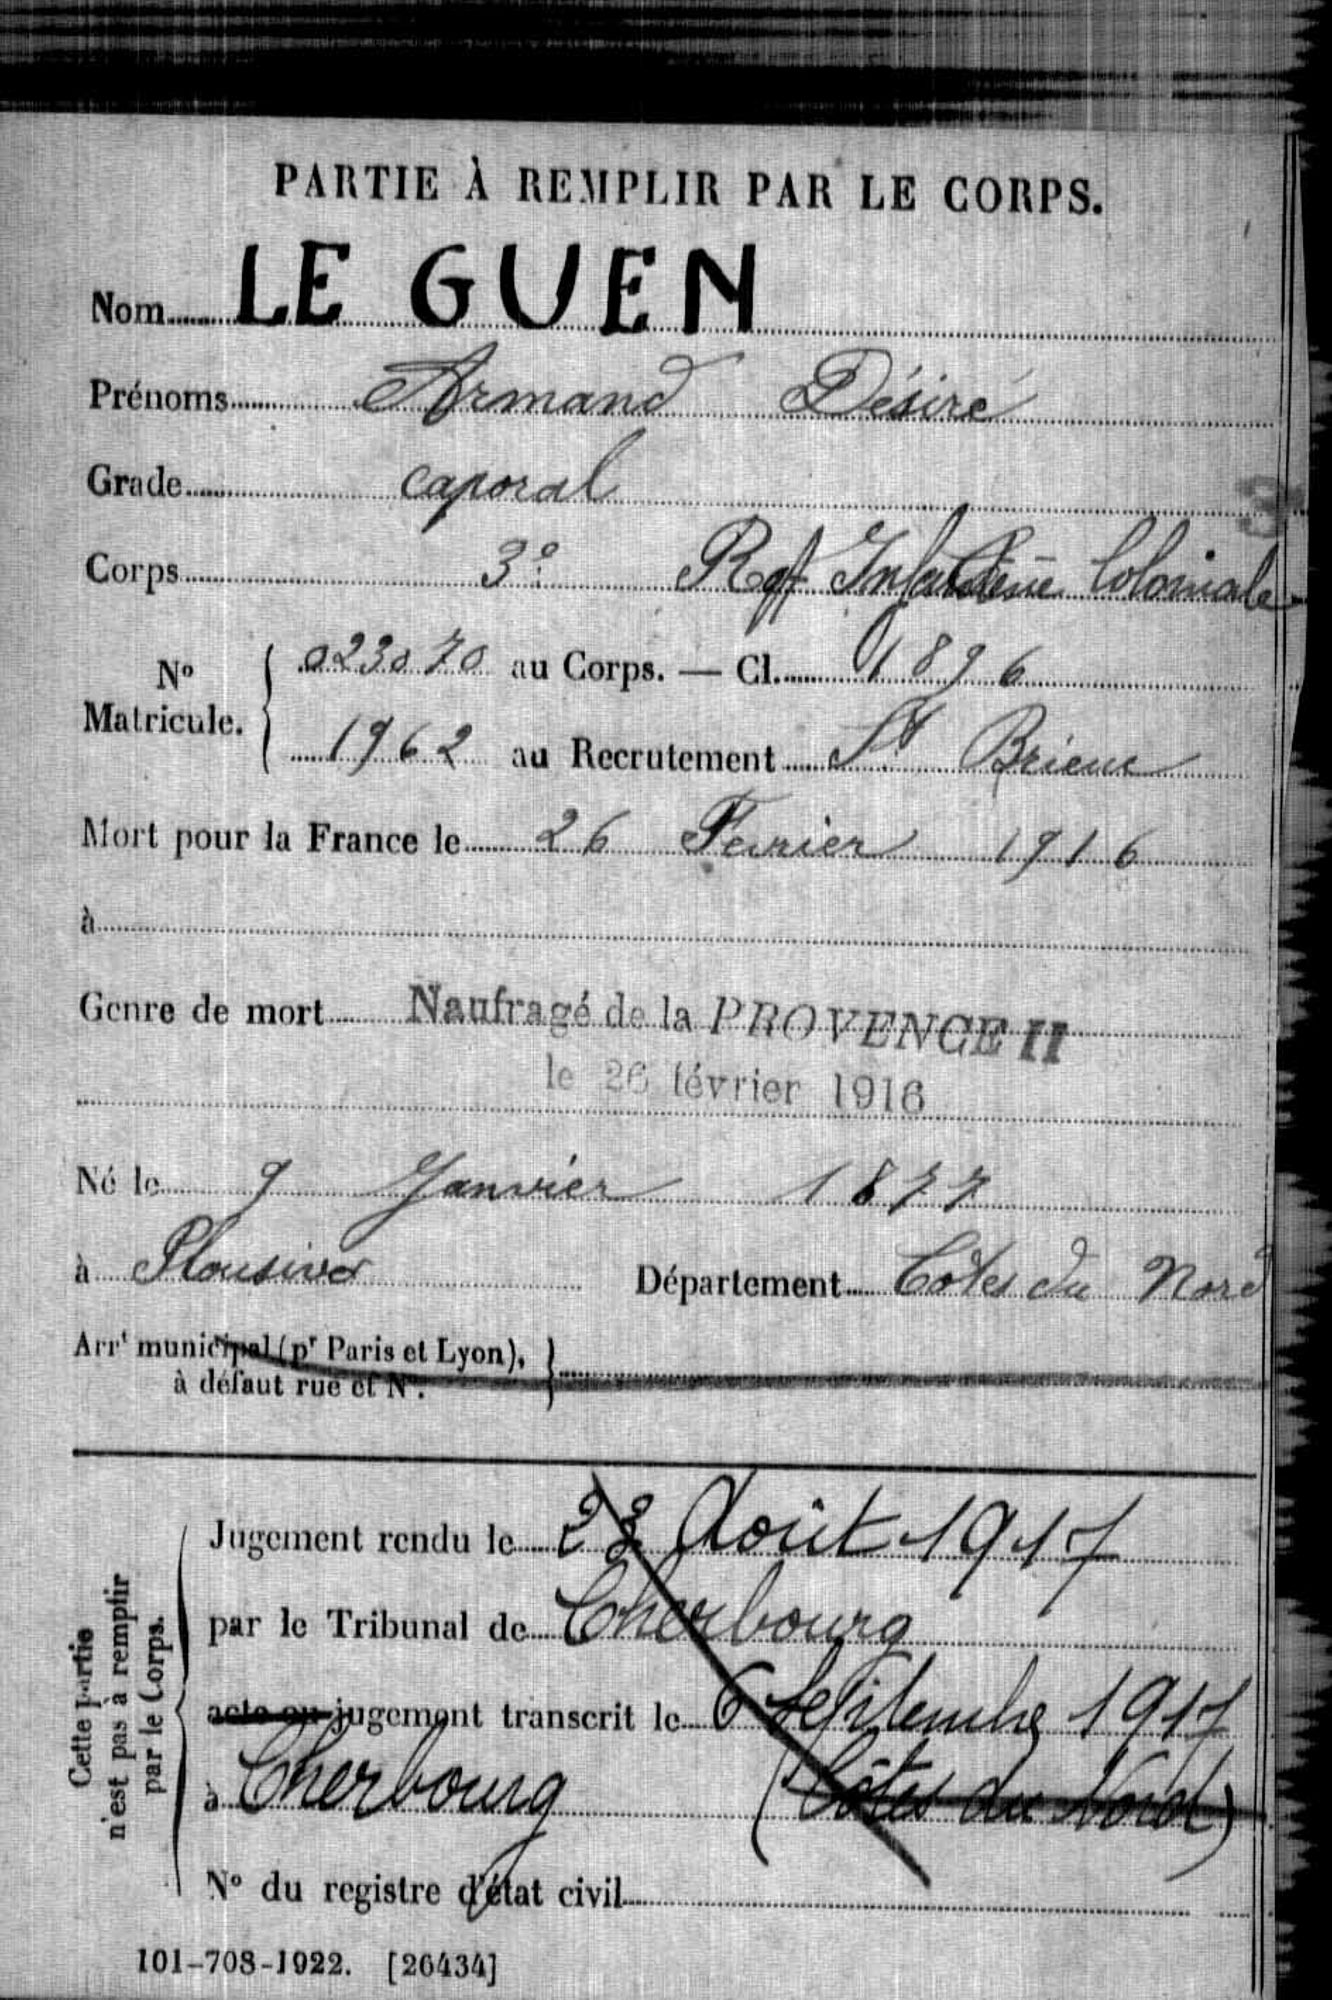 PARTIE À REMPLIR PAR LE CORPS.
Nom LE GUEN
Prénoms Armand Désiré
Grade caporal
3
Corps 3e Rgt Infanterie Coloniale
No Matricule. 023070 au Corps. — Cl. 1896
1962 au Recrutement St Brieuc
Mort pour la France le 26 Fevrier 1916
à
Genre de mort Naufragé de la PROVENCE II
le 26 février 1916
Né le 9 Janvier 1877
à Plousivo Département Côtes du Nord
Arrt municipal (pr Paris et Lyon),
à défaut rue et No.
Cette partie
n'est pas à remplir
par le Corps.
Jugement rendu le 23 Août 1917
par le Tribunal de Cherbourg
acte ou jugement transcrit le 6 Septembre 1917
à Cherbourg (Côtes du Nord)
No du registre d'état civil
101-708-1922. [26434]